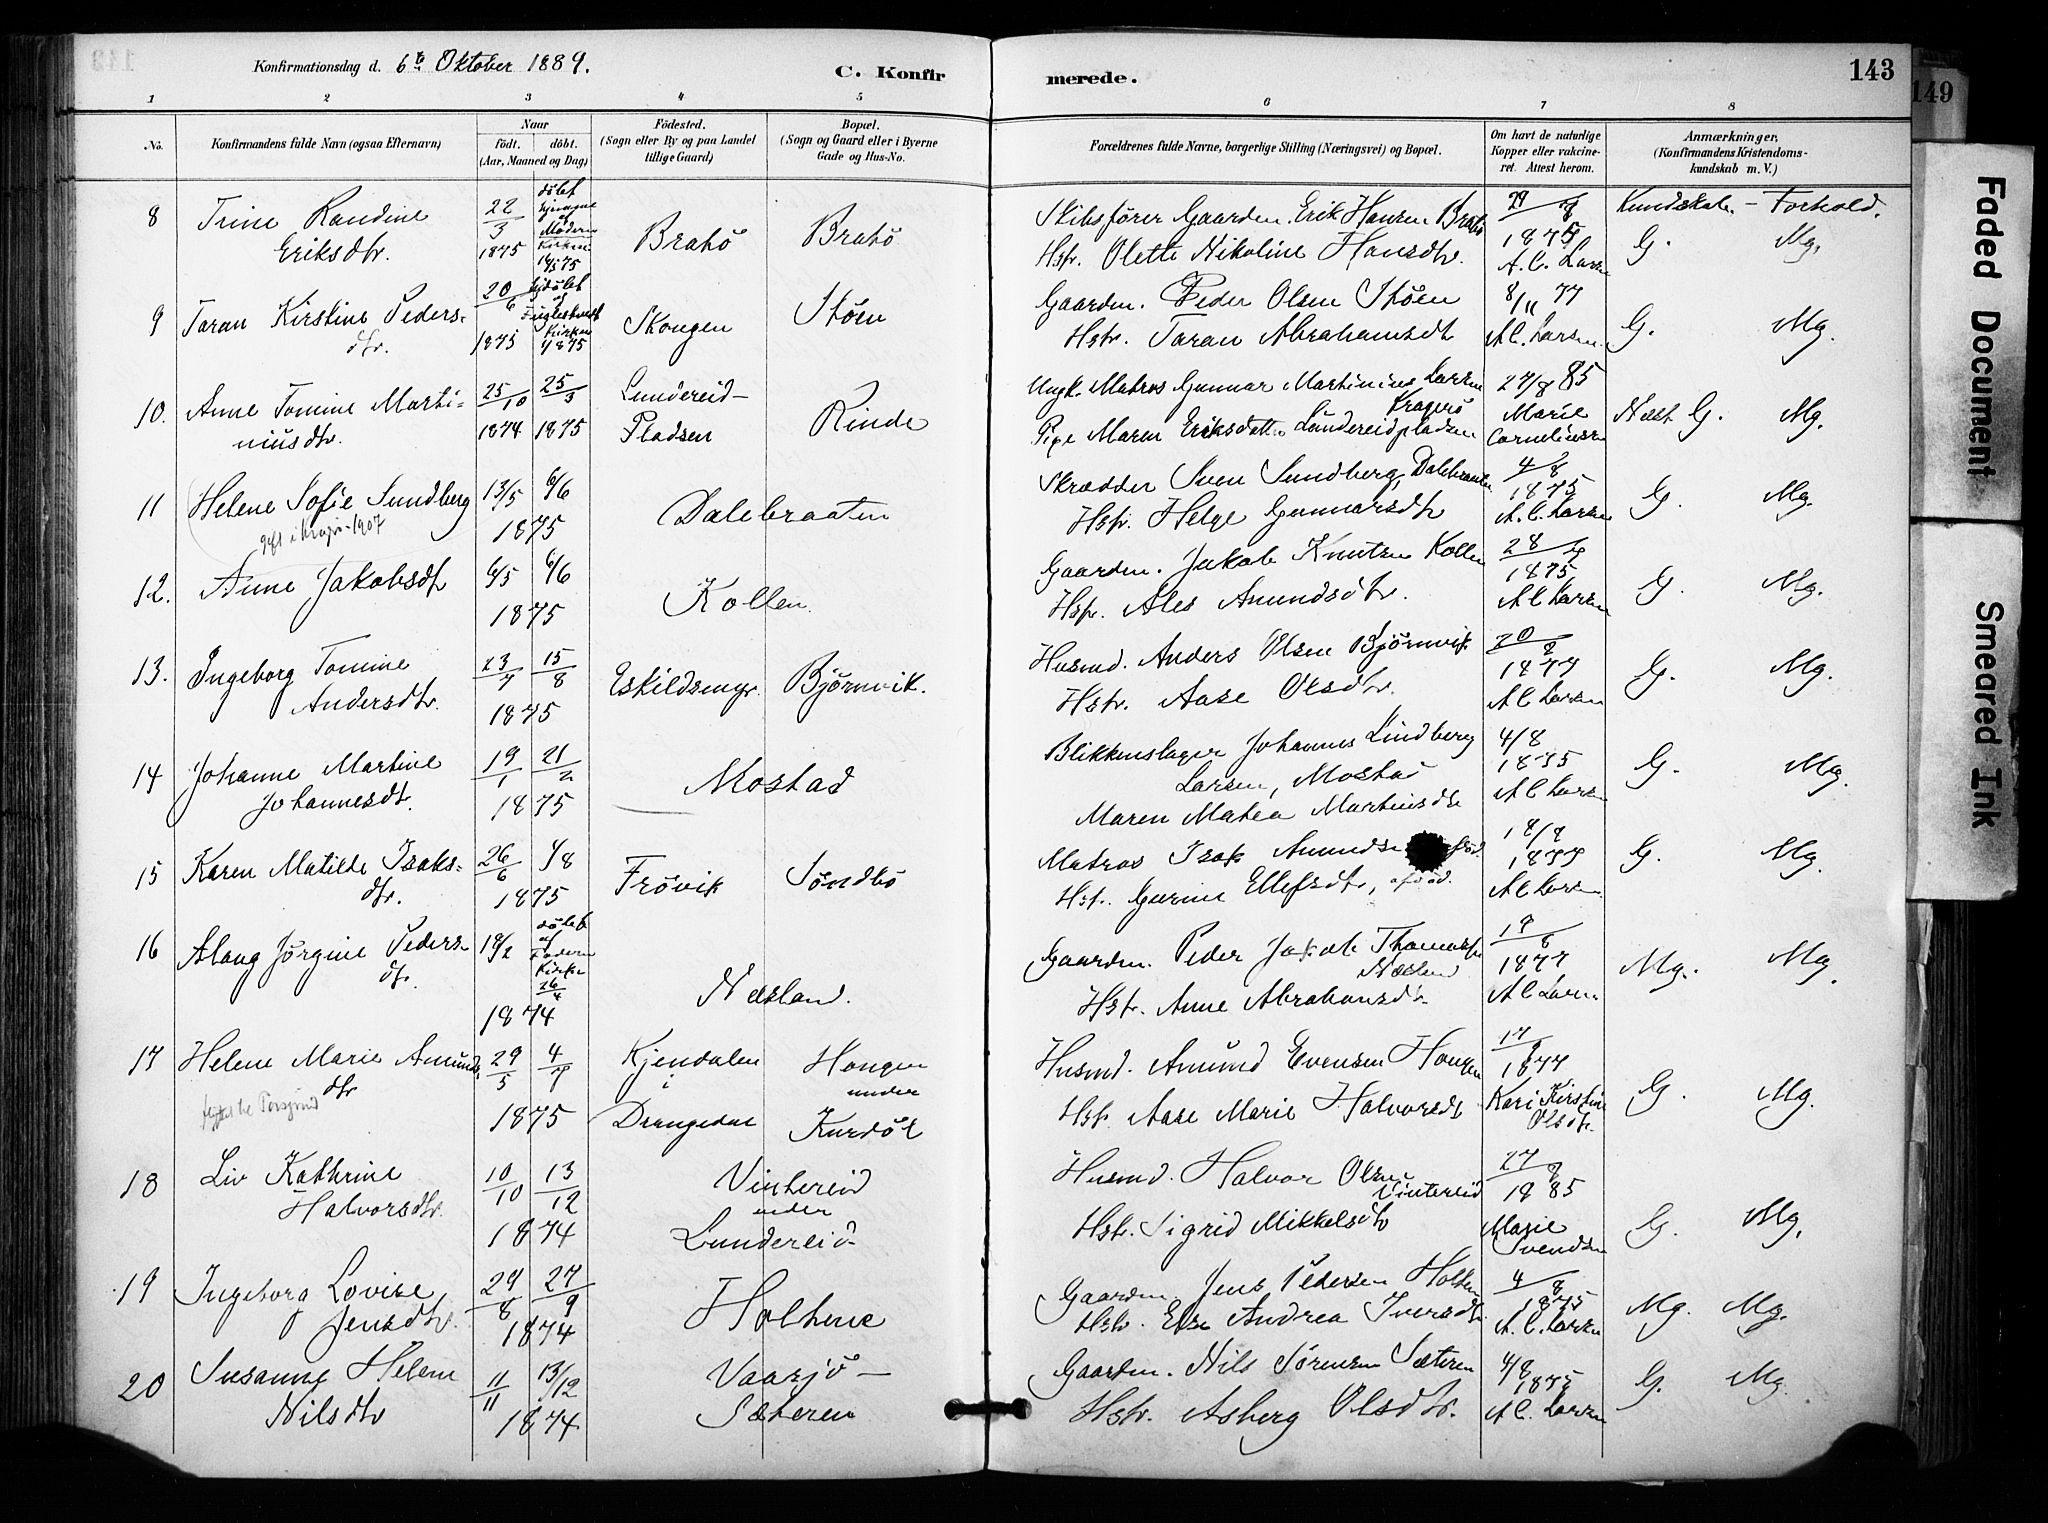 Konfirmationsdag d. 6te Oktober 1889.
C. Konfirmerede.
143
149
1 2 3 4 5 6 7 8
No.
Konfirmandens fulde Navn (ogsaa Efternavn)
Naar
födt. döbt.
(Aar, Maaned og Dag)
Födested.
(Sogn eller By og paa Landet
tillige Gaard)
Bopæl.
(Sogn og Gaard eller i Byerne
Gade og Hus-No.
Forældrenes fulde Navne, borgerlige Stilling (Næringsvei) og Bopæl.
Om havt de naturlige
Kopper eller vakcine-
ret. Attest herom.
Anmærkninger,
(Konfirmandens Kristendoms-
kundskab m. V.)
Kundskab. - Forhold.
8 Trine Randine
Eriksdtr.
22/3 1875
döbt hjemme af Moderen
Kirken
Brabö Brabö
Skibsförer Gaarden. Erik Hansen Brabö
Hstr. Olette Nikoline Hansdtr.
A. C. Larsen
G. Mg.
9 Taran Kirstine Peders-
dtr.
20/6 1875
Kirken
Skougen Stöen
Gaarden. Peder Olsen Stöen
Hstr. Taran Abrahamsdt
8/11 77
A C. Larsen.
G. Mg.
10. Anne Tomine Marti-
niusdtr.
25/10 1874 25/3 1875
Lundereid-
Pladsen
Rinde
Ungk. Matros Gunnar Martinius Larsen
Kragerö
Pige Maren Eriksdatt. Lundereidpladsen
27/8 85
Marie
Corneliussen
Næst G. Mg.
11 Helene Sofie Sundberg
gift i Kragerö 1907
13/5 6/6
1875
Dalebraaten
Skrædder Sven Sundberg Dalebraaten
Hstr. Helge Gunnarsdtr
4/8
1875
A. C. Larsen
G. Mg.
12. Anne Jakobsdtr
6/5 6/6
1875
Kollen.
Gaarden. Jakob Knutsen Kollen
Hstr. Ales Amundsdtr.
1875
A C Larsen
G. Mg.
13. Ingeborg Tomine
Andersdtr.
23/7 15/8
1875
Eskildsmyr. Björnvik.
Husmd. Anders Olsen Björnvik
Hstr. Aase Olsdtr.
1877
A C Larsen
G. Mg.
14 Johanne Martine
Johannesdt.
19/1 21/2
1875
Mostad
Blikkenslager Johannes Lindberg
Larsen, Mostad
Maren Matea Martinsdtr
4/8
A C Larsen
G. Mg.
15 Karen Matilde Isaks-
dtr.
26/6 1/8
1875
Frövik Söndbö
Matros Isak Amundsen
Hstr. Gurine Ellefsdtr,
18/8
1877
A C Larsen
G. Mg.
16 Aslaug Jörgine Peders-
dtr.
18/2
döbt
af
Faderen
Kirken
26/4
1874
Næsland.
Gaarden. Peder Jakob Thomassen
Næsland
Hstr. Anne Abrahamsdtr
1877
A C Larsen
Mg. Mg.
17 Helene Marie Amunds-
dtr
flyttet til Porsgrund
29/5 4/7
1875
Kjendalen
i
Drangedal
Hougen
under
Kurdöl
Husmd. Amund Evensen Hougen
Hstr. Aase Marie Halvorsdt
1877
Kari Kirstine
Olsdtr.
G. Mg.
18 Liv Kathrine
Halvorsdtr.
10/10 13/12
1874
Vintereid
under
Lundereid
Husmd. Halvor Olsen
Vintereid
Hstr. Sigrid Mikkelsdtr
1885
Marie
Svendsen
G. Mg.
19 Ingeborg Lovise
Jensdtr.
29/8 27/9
1874
Holtene
Gaarden. Jens Pedersen Holtene
Hstr. Else Andrea Iversdtr.
4/8
1875
A. C. Larsen
Mg. Mg.
20 Susanne Helene
Nilsdtr
11/11 13/12
1874
Vaasjö-
Sæteren
Gaarden. Nils Sörensen Sæteren
Hstr. Asberg Olsdtr.
4/8
1875
A C. Larsen
G. Mg.
Faded Document
Smeared Ink